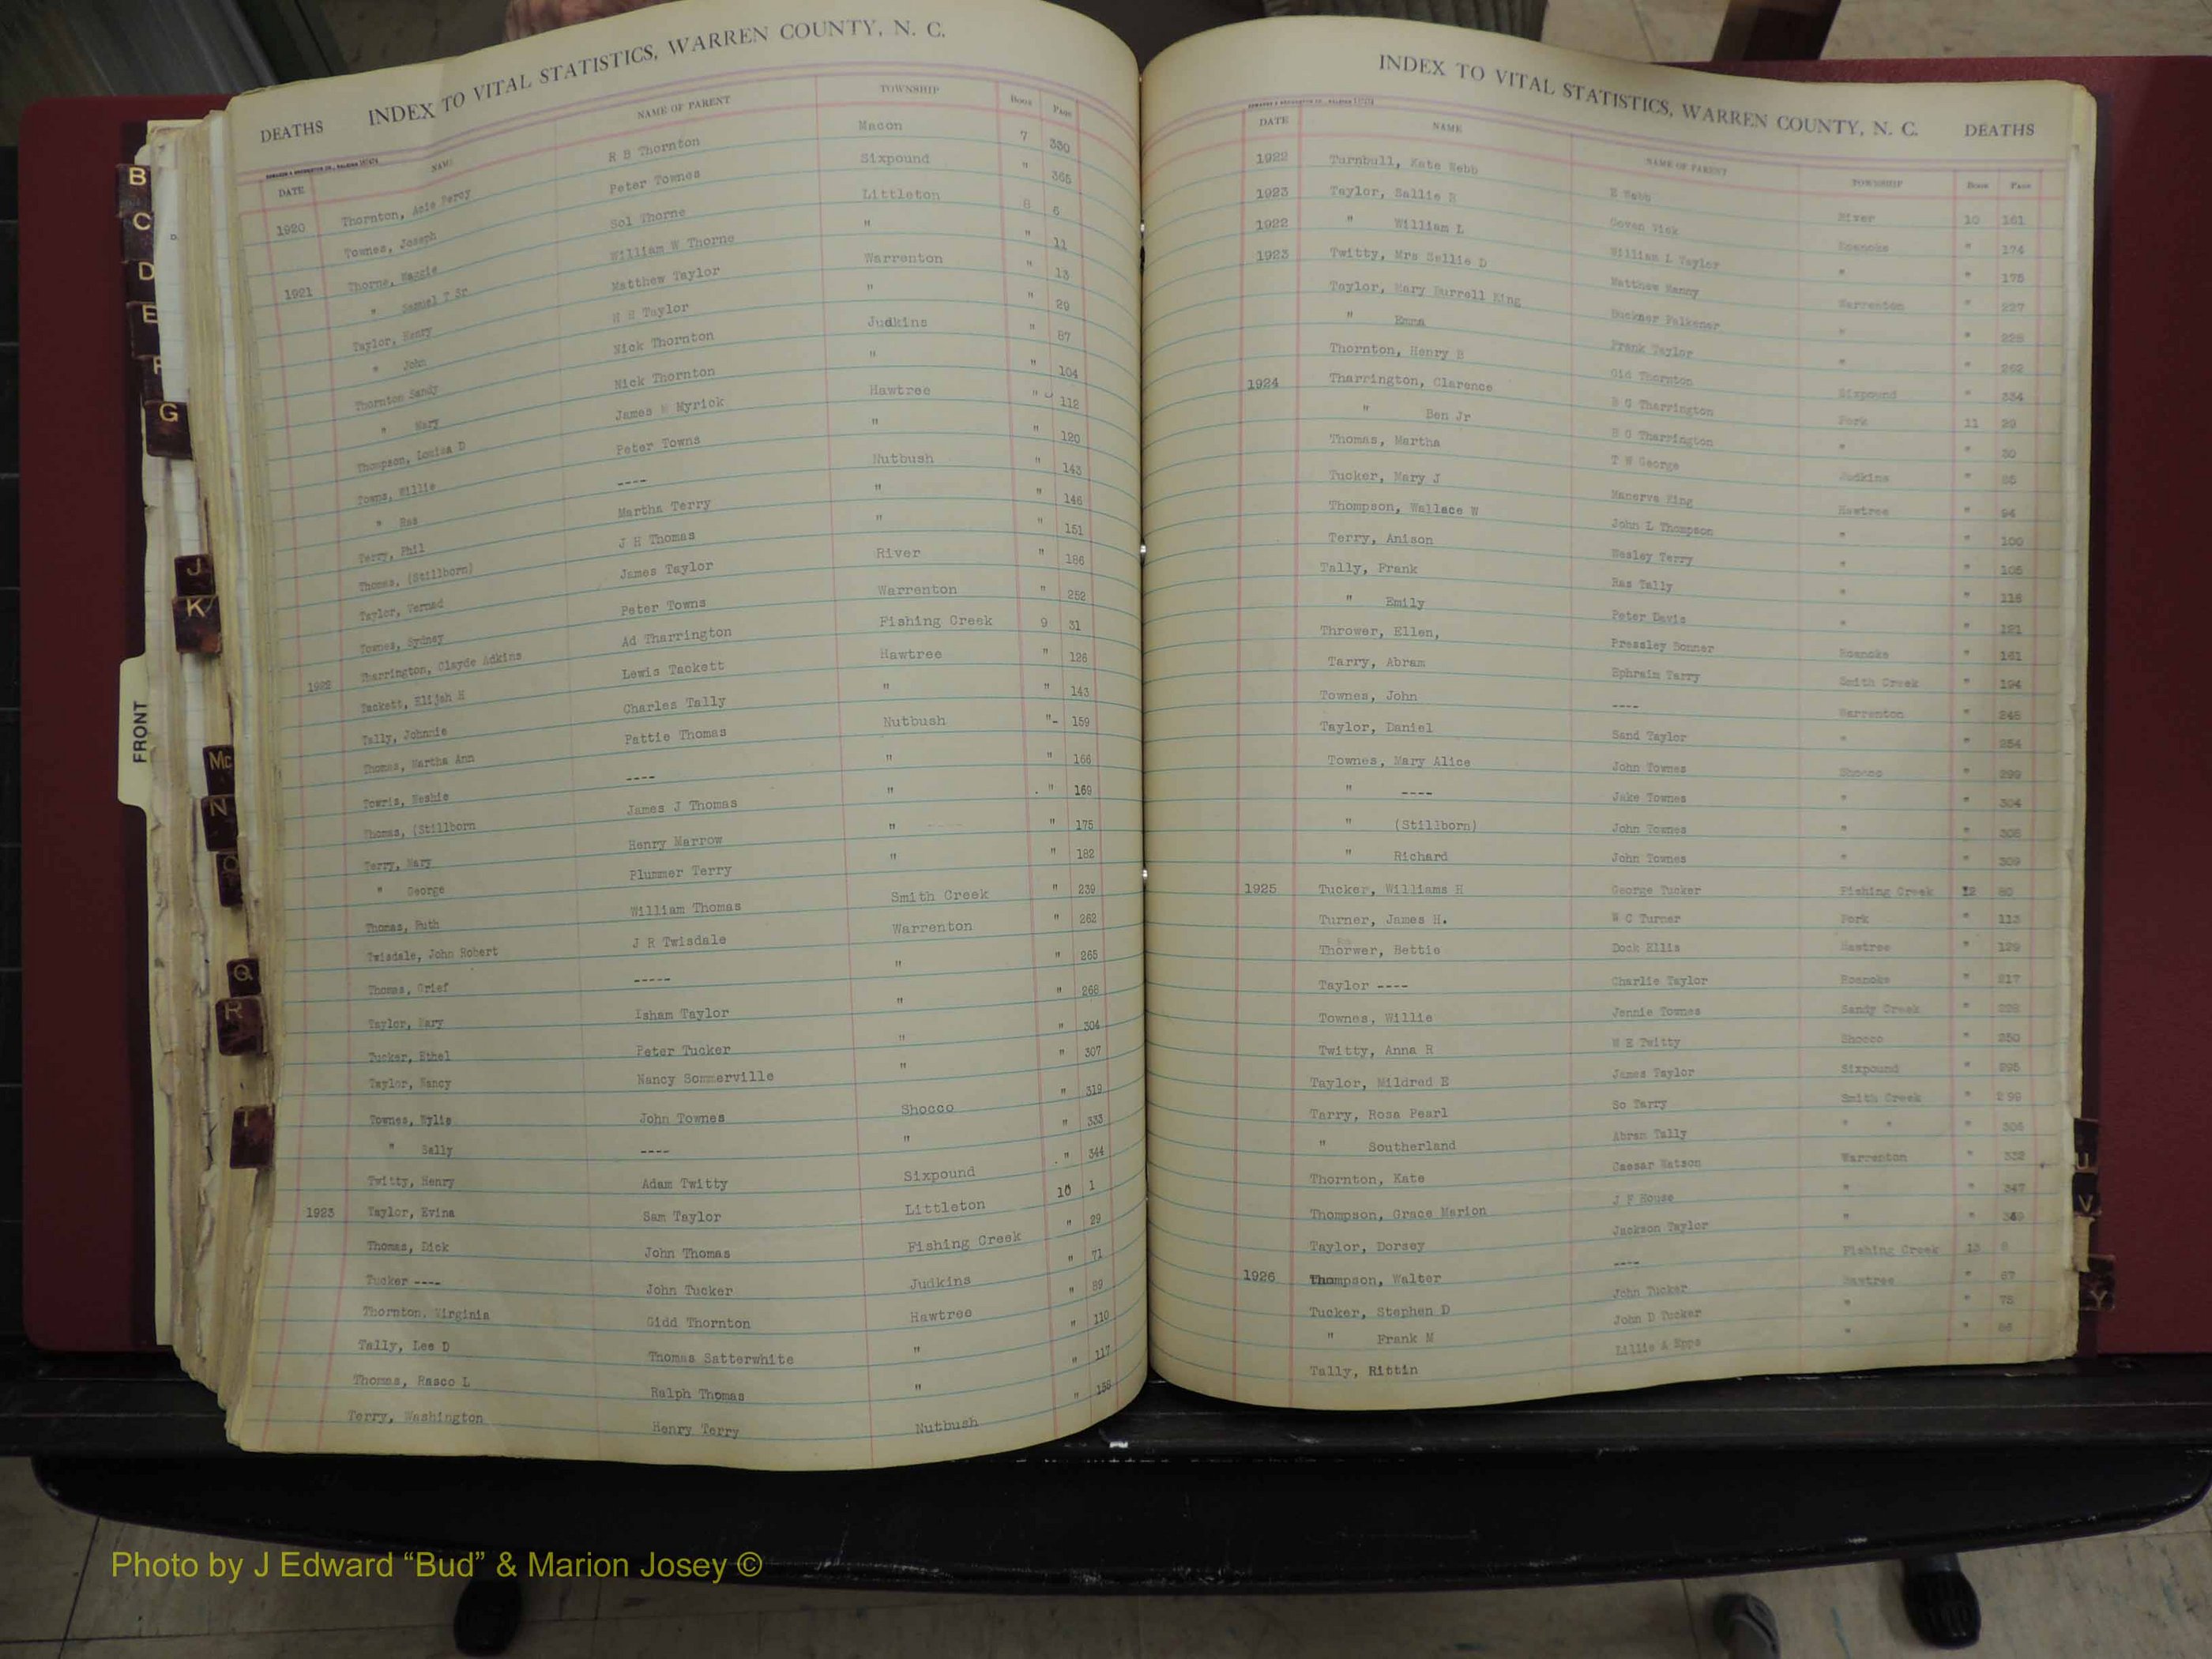 DEATHS INDEX TO VITAL STATISTICS, WARREN COUNTY, N. C.
DATE NAME NAME OF PARENT TOWNSHIP Book Page
1920 Thornton, Acie Percy R B Thornton Macon 7 330
Townes, Joseph Peter Townes Sixpound " 365
1921 Thorne, Maggie Sol Thorne Littleton 8 6
" Samuel T Sr William W Thorne " " 11
Taylor, Henry Matthew Taylor Warrenton " 13
" John Taylor " " 29
Thornton Sandy Nick Thornton Judkins " 87
" Mary Nick Thornton " " 104
Thompson, Louisa D James W Myrick Hawtree " 112
Towns, Willie Peter Towns " " 120
" Ras ---- Nutbush " 143
Terry, Phil Martha Terry " " 146
Thomas, (Stillborn) J H Thomas " " 151
Taylor, James Taylor River " 186
Townes, Sydney Peter Towns Warrenton " 252
1922 Tharrington, Clayde Adkins Ad Tharrington Fishing Creek 9 31
Tackett, Elijah H Lewis Tackett Hawtree " 126
Tally, Johnnie Charles Tally " " 143
Thomas, Martha Ann Pattie Thomas Nutbush "- 159
---- " " 166
Thomas, (Stillborn James J Thomas " " 169
Terry, Mary Henry Marrow " " 175
" George Plummer Terry " " 182
Thomas, Ruth William Thomas Smith Creek " 239
Twisdale, John Robert J R Twisdale Warrenton " 262
Thomas, Grief ----- " " 265
Taylor, Mary Isham Taylor " " 268
Tucker, Ethel Peter Tucker " " 304
Taylor, Nancy Nancy Sommerville " " 307
Townes, Wylie John Townes Shocco " 319
" Sally ---- " " 333
Twitty, Henry Adam Twitty Sixpound " 344
1923 Taylor, Evina Sam Taylor Littleton 10 1
Thomas, Dick John Thomas Fishing Creek " 29
Tucker ---- John Tucker Judkins " 71
Thornton, Virginia Gidd Thornton Hawtree " 89
Tally, Lee D Thomas Satterwhite " " 110
Thomas, Rasco L Ralph Thomas " " 117
Terry, Washington Henry Terry Nutbush " 158
INDEX TO VITAL STATISTICS, WARREN COUNTY, N. C. DEATHS
DATE NAME NAME OF PARENT TOWNSHIP Book Page
1922 Turnbull, Kate Webb E Webb River 10 161
1923 Taylor, Sallie B Coven Vick Roanoke " 174
1922 " William L William L Taylor " " 175
1923 Twitty, Mrs Sallie D Matthew Warrenton " 227
Taylor, Mary Burrell King Buckner Falkener " " 228
" Emma Frank Taylor " " 262
Thornton, Henry B Gid Thornton Sixpound " 334
1924 Tharrington, Clarence B G Tharrington Fork 11 29
" Ben Jr B G Tharrington " " 30
Thomas, Martha T W George Judkins "
Tucker, Mary J Manerva King Hawtree " 94
Thompson, Wallace W John L Thompson " " 100
Terry, Anison Wesley Terry " " 105
Tally, Frank Ras Tally " " 116
" Emily Peter Davis " " 121
Thrower, Ellen, Pressley Bonner Roanoke " 161
Tarry, Abram Ephraim Tarry Smith Creek " 194
Townes, John ---- Warrenton "
Taylor, Daniel Sand Taylor " " 254
Townes, Mary Alice John Townes Shocco " 299
" ---- Jake Townes " " 304
" (Stillborn) John Townes "
" Richard John Townes " " 309
1925 Tucker, Williams H George Tucker Fishing Creek 12 80
Turner, James H. W C Turner Fork " 113
Thorwer, Bettie Dock Ellis Hawtree " 129
Taylor ---- Charlie Taylor Roanoke " 217
Townes, Willie Jennie Townes Sandy Creek " 228
Twitty, Anna R W E Twitty Shocco " 250
Taylor, Mildred E James Taylor Sixpound " 295
Tarry, Rosa Pearl So Tarry Smith Creek " 299
" Southerland Abram Tally " " "
Thornton, Kate Caesar Watson Warrenton " 332
Thompson, Grace Marion J P House " " 347
Taylor, Dorsey Jackson Taylor " " 349
1926 Thompson, Walter ---- Fishing Creek 13 8
Tucker, Stephen D John Tucker Hawtree " 67
" Frank M John D Tucker " " 75
Tally, Rittin Lillie A Epps " "
B
C
D
E
F
G
J
K
FRONT
Mc
N
O
Q
R
T
U
V
Y
Photo by J Edward “Bud” & Marion Josey ©